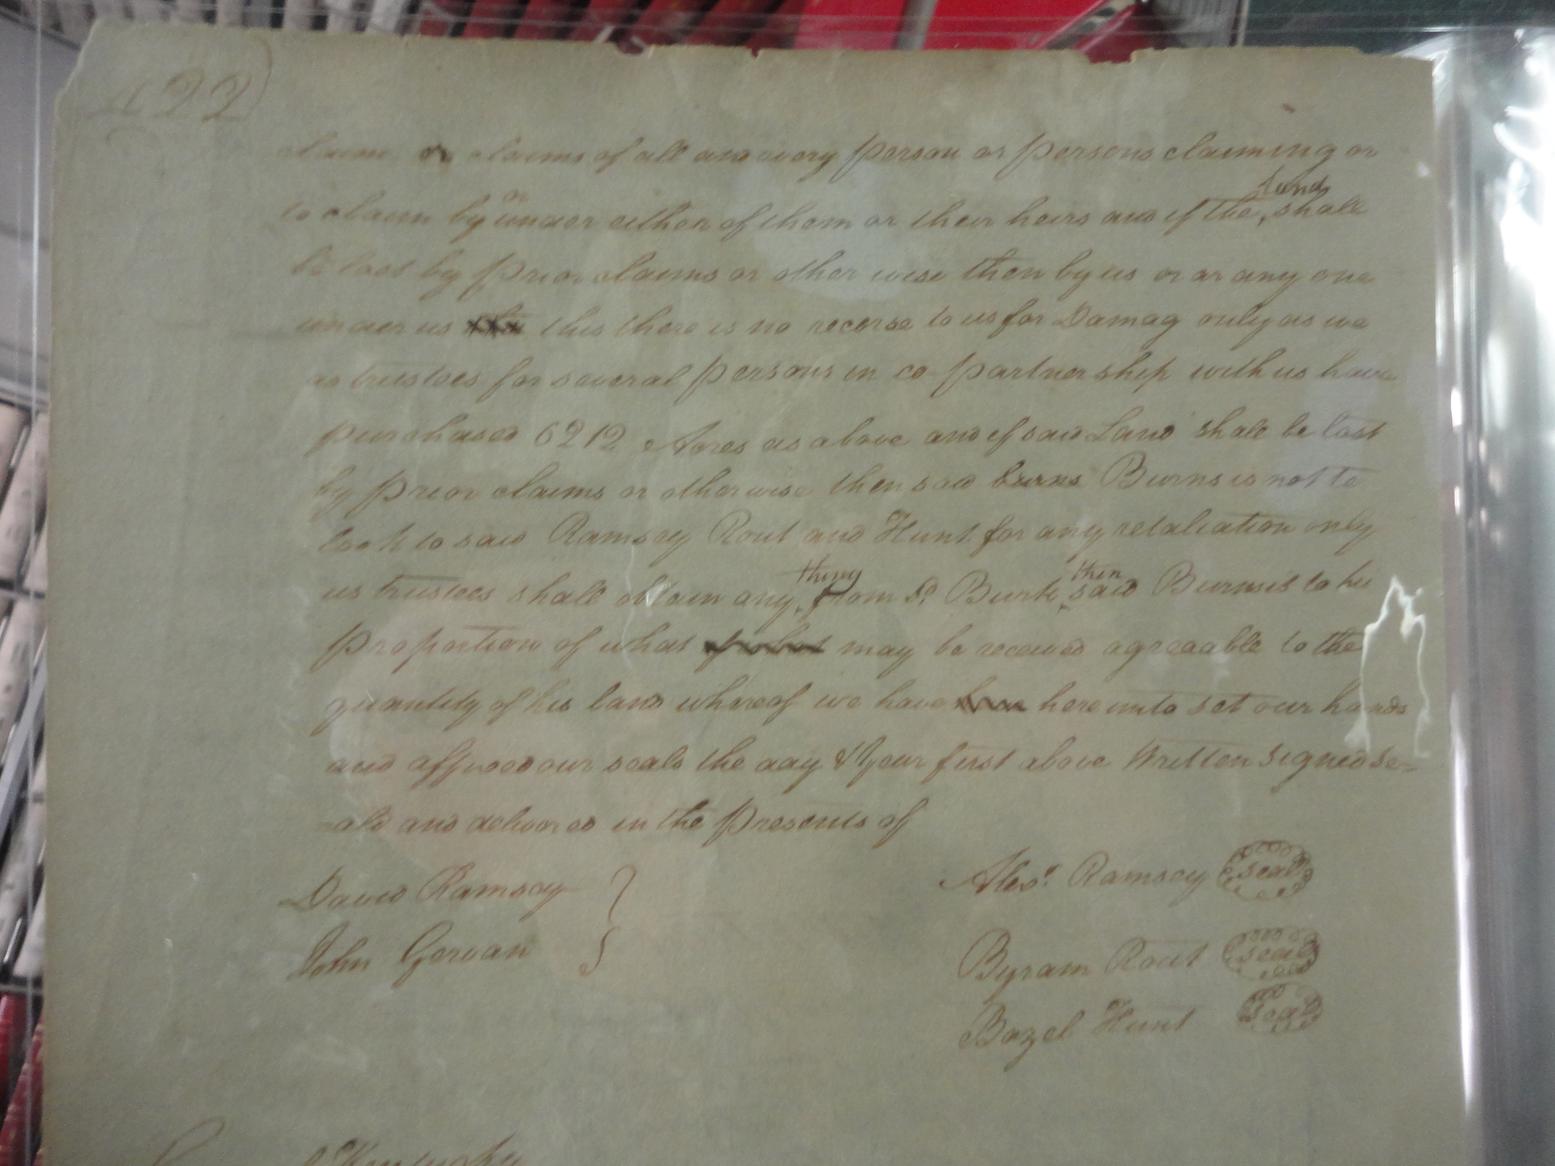 422)
claim or claims of all and every person or persons claiming or
to claim by or under either of them or their heirs and if the land shall
be lost by prior claims or other wise then by us or or any one
under us this there is no recorse to us for Damag only as we
as trustees for several persons in co-partnership with us have
purchased 6212 Acres as above and if said Land shall be lost
by prior claims or otherwise then said burns Burns is not to
look to said Ramsey Rout and Hunt for any retaliation only
us trustees shall obtain any thing from sd. Burk then said Burns is to he
proportion of what may be received agreaable to the
quantity of his land whereof we have here unto set our hands
and affixed our seals the day & year first above Written Signed Se-
-ald and delivered in the presents of
David Ramsey } Alexr. Ramsey seal
John Gervan Byram Rout seal
Bazel Hunt seal